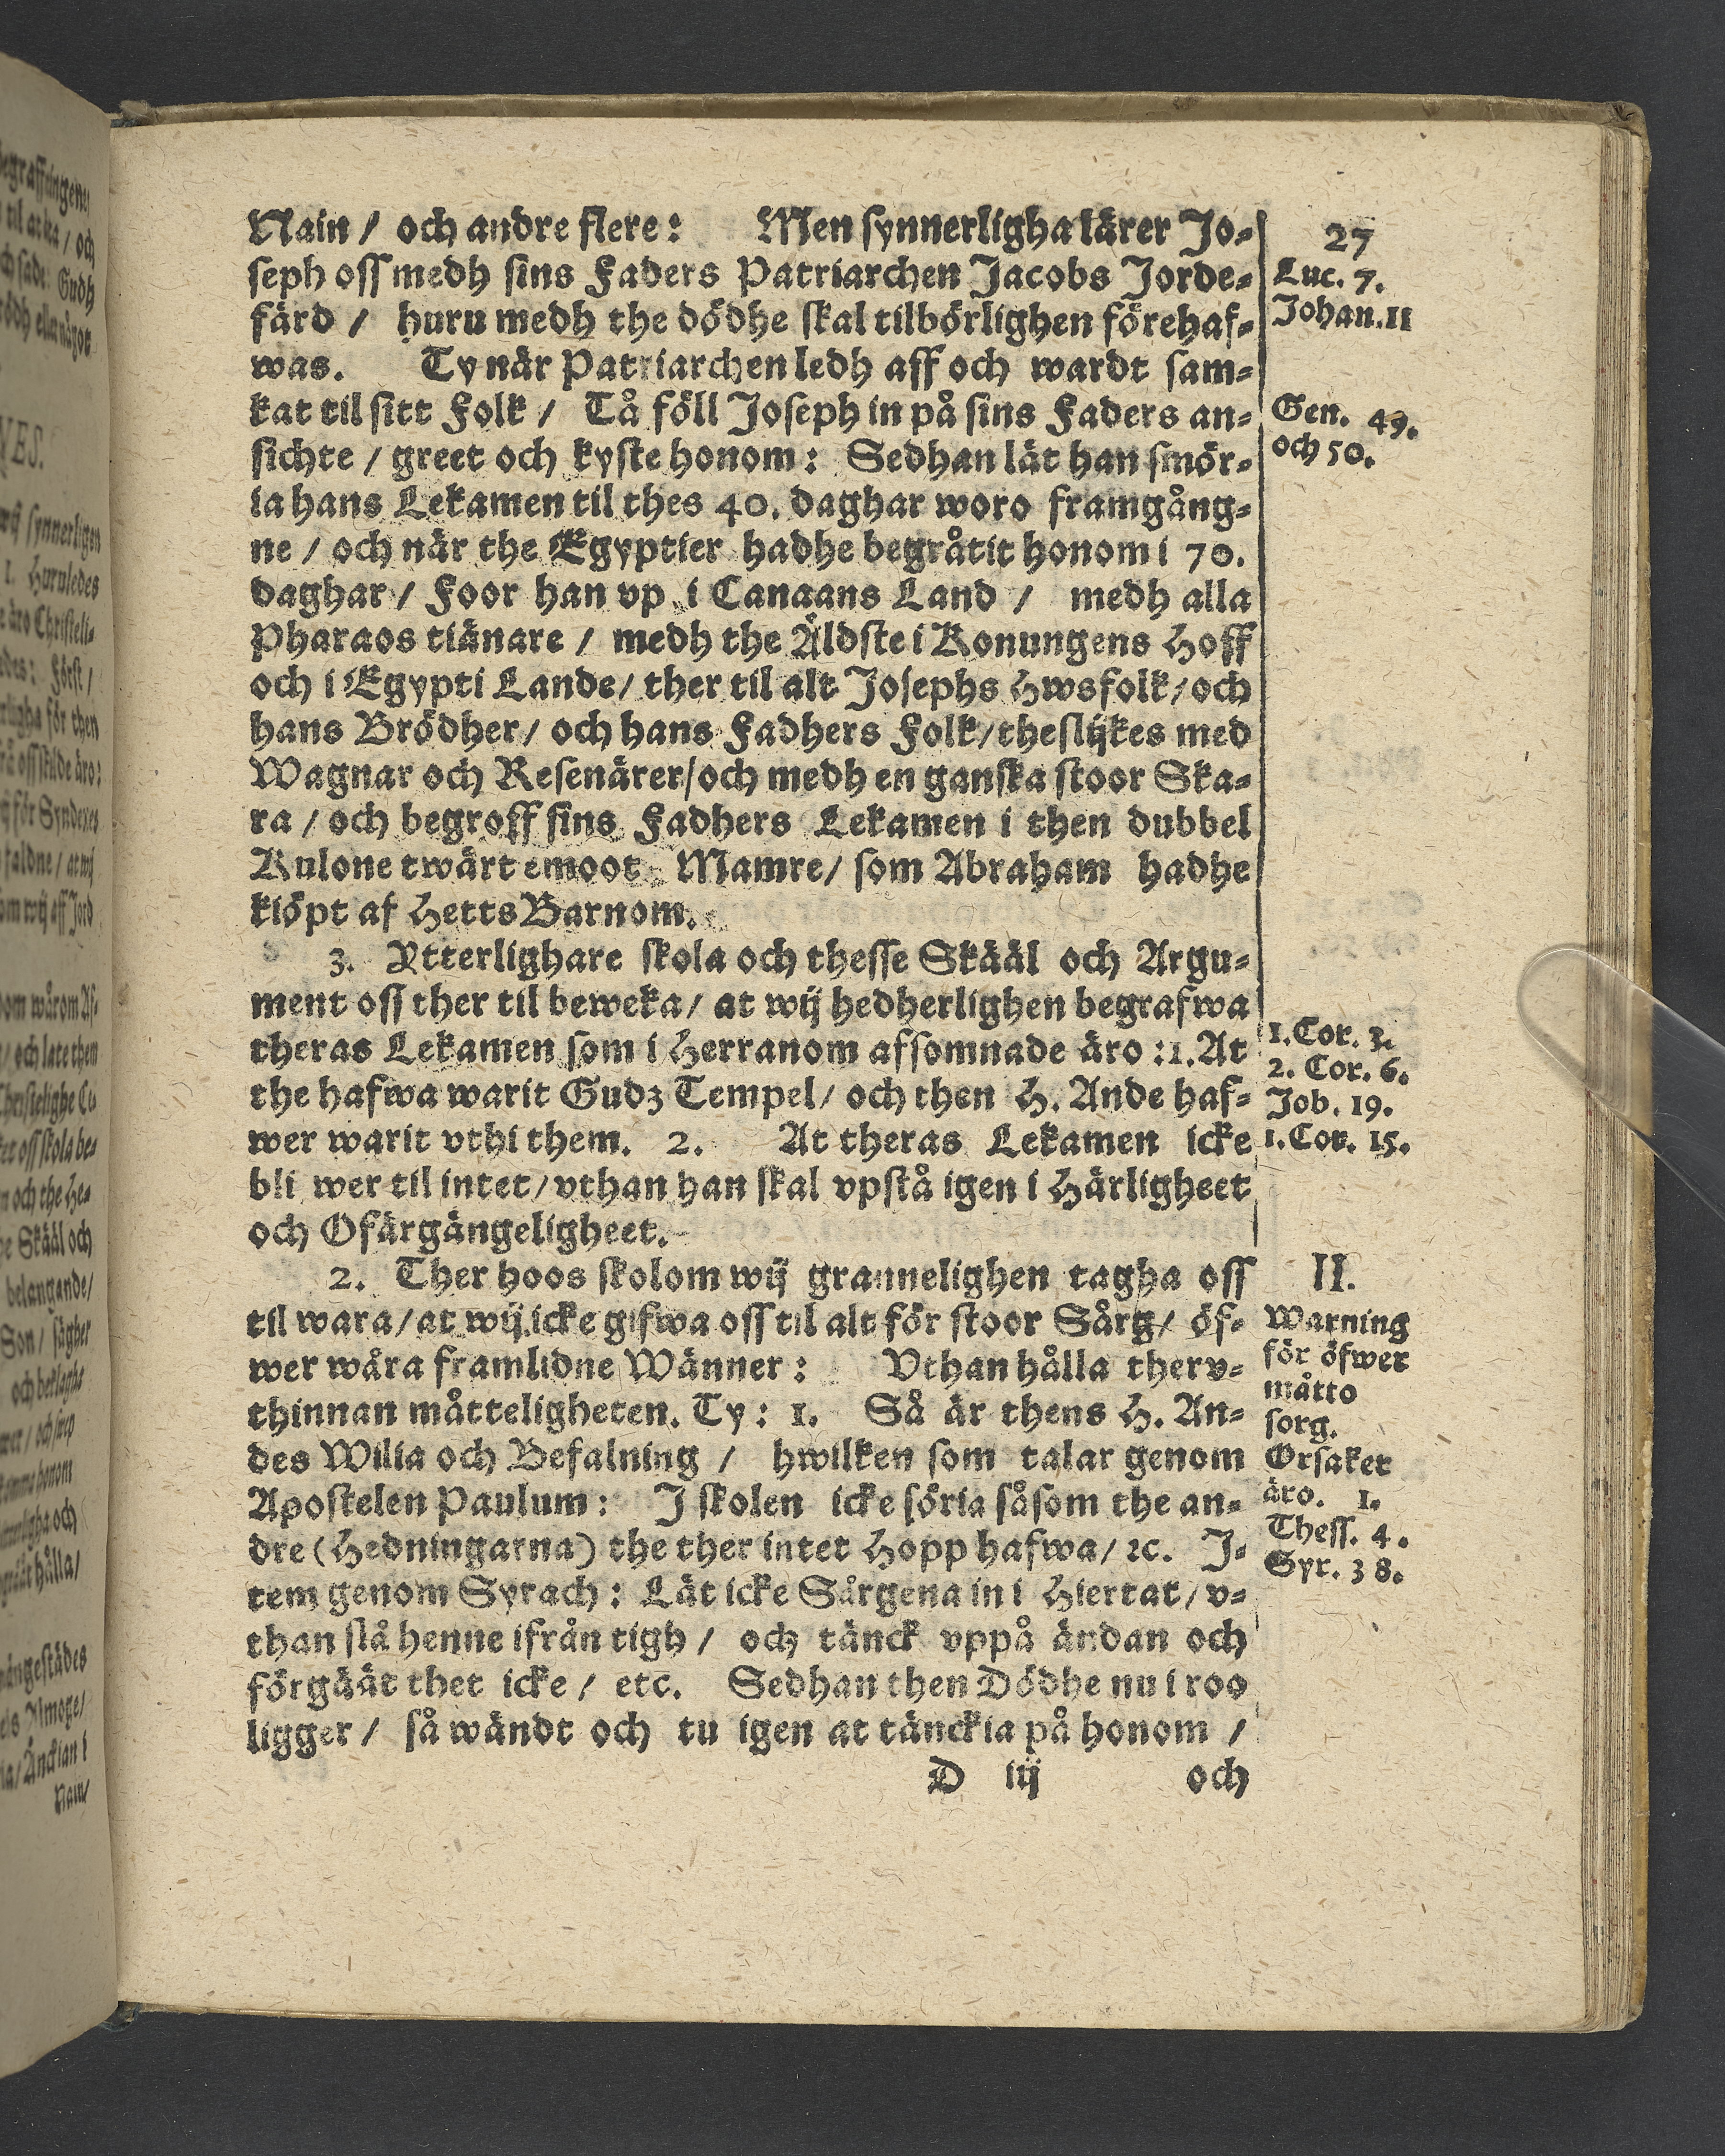 Nain / och andre flere: Men synnerligha lärer Jo-
seph oss medh sins Faders Patriarchen Jacobs Jorde-
färd / huru medh the dödhe skal tilbörlighen förehaf-
was. Ty när Patriarchen ledh aff och wardt sam-
kat til sitt Folk / Tå föll Joseph in på sins Faders an-
sichte / greet och kyste honom: Sedhan lät han smör-
ia hans Lekamen til thes 40. daghar woro framgång-
ne / och när the Egyptier hadhe begråtit honom i 70.
daghar / Foor han vp i Canaans Land / medh alla
Pharaos tiänare / medh the Äldste i Konungens Hoff
och i Egypti Lande / ther til alt Josephs Hwsfolk / och
hans Brödher / och hans Fadhers Folk / theslijkes med
Wagnar och Resenärer / och medh en ganska stoor Ska-
ra / och begroff sins Fadhers Lekamen i then dubbel
Kulone twärt emoot Mamre / som Abraham hadhe
kiöpt af Hetts Barnom.
3. Ytterlighare skola och thesse Skääl och Argu-
ment oss ther til beweka / at wij hedherlighen begrafwa
theras Lekamen som i Herranom afsomnade äro: 1. At
the hafwa warit Gudz Tempel / och then H. Ande haf-
wer warit vthi them. 2. At theras Lekamen icke
bli wer til intet / vthan han skal vpstå igen i Härligheet
och Ofärgängeligheet.
2. Ther hoos skolom wij grannelighen tagha oss
til wara / at wij icke gifwa oss til alt för stoor Sårg / öf-
wer wåra framlidne Wänner: Vthan hålla therv-
thinnan måtteligheten. Ty: 1. Så är thens H. An-
des Wilia och Befalning / hwilken som talar genom
Apostelen Paulum: J skolen icke söria såsom the an-
dre (Hedningarna) the ther intet Hopp hafwa / ꝛc. J-
tem genom Syrach: Lät icke Sårgena in i Hiertat / v-
than slå henne ifrån tigh / och tänck vppå ändan och
förgäät thet icke / etc. Sedhan then Dödhe nu i roo
ligger / så wändt och tu igen at tänckia på honom /
D iij och
27
Luc. 7.
Johan. 11
Gen. 49.
och 50.
1. Cor. 3.
2. Cor. 6.
Job. 19.
1. Cor. 15.
II.
Warning
för öfwer
måtto
sorg.
Orsaker
äro. 1.
Thess. 4.
Syr. 38.